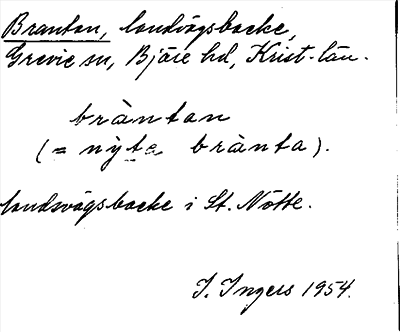 Brantan, landvägsbacke,
Grevie sn, Bjäre hd, Krist. län.
bràntan
(= nỳte brànta).
landsvägsbacke i St. Nötte.
I. Ingers 1954.